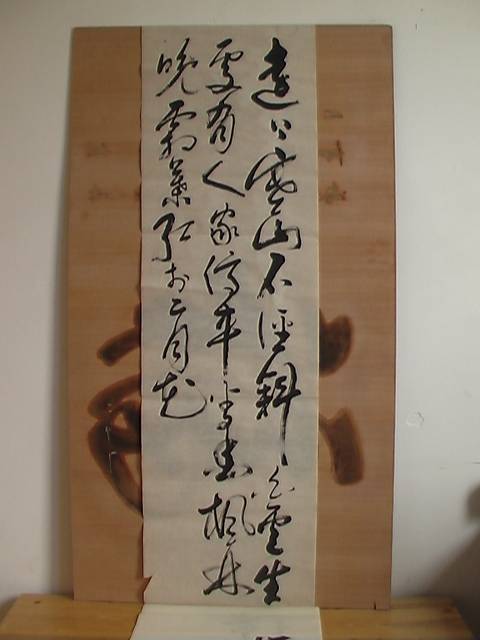 遠上寒山石徑斜白雲生
處有人家停車坐愛楓林
晚霜葉紅於二月花